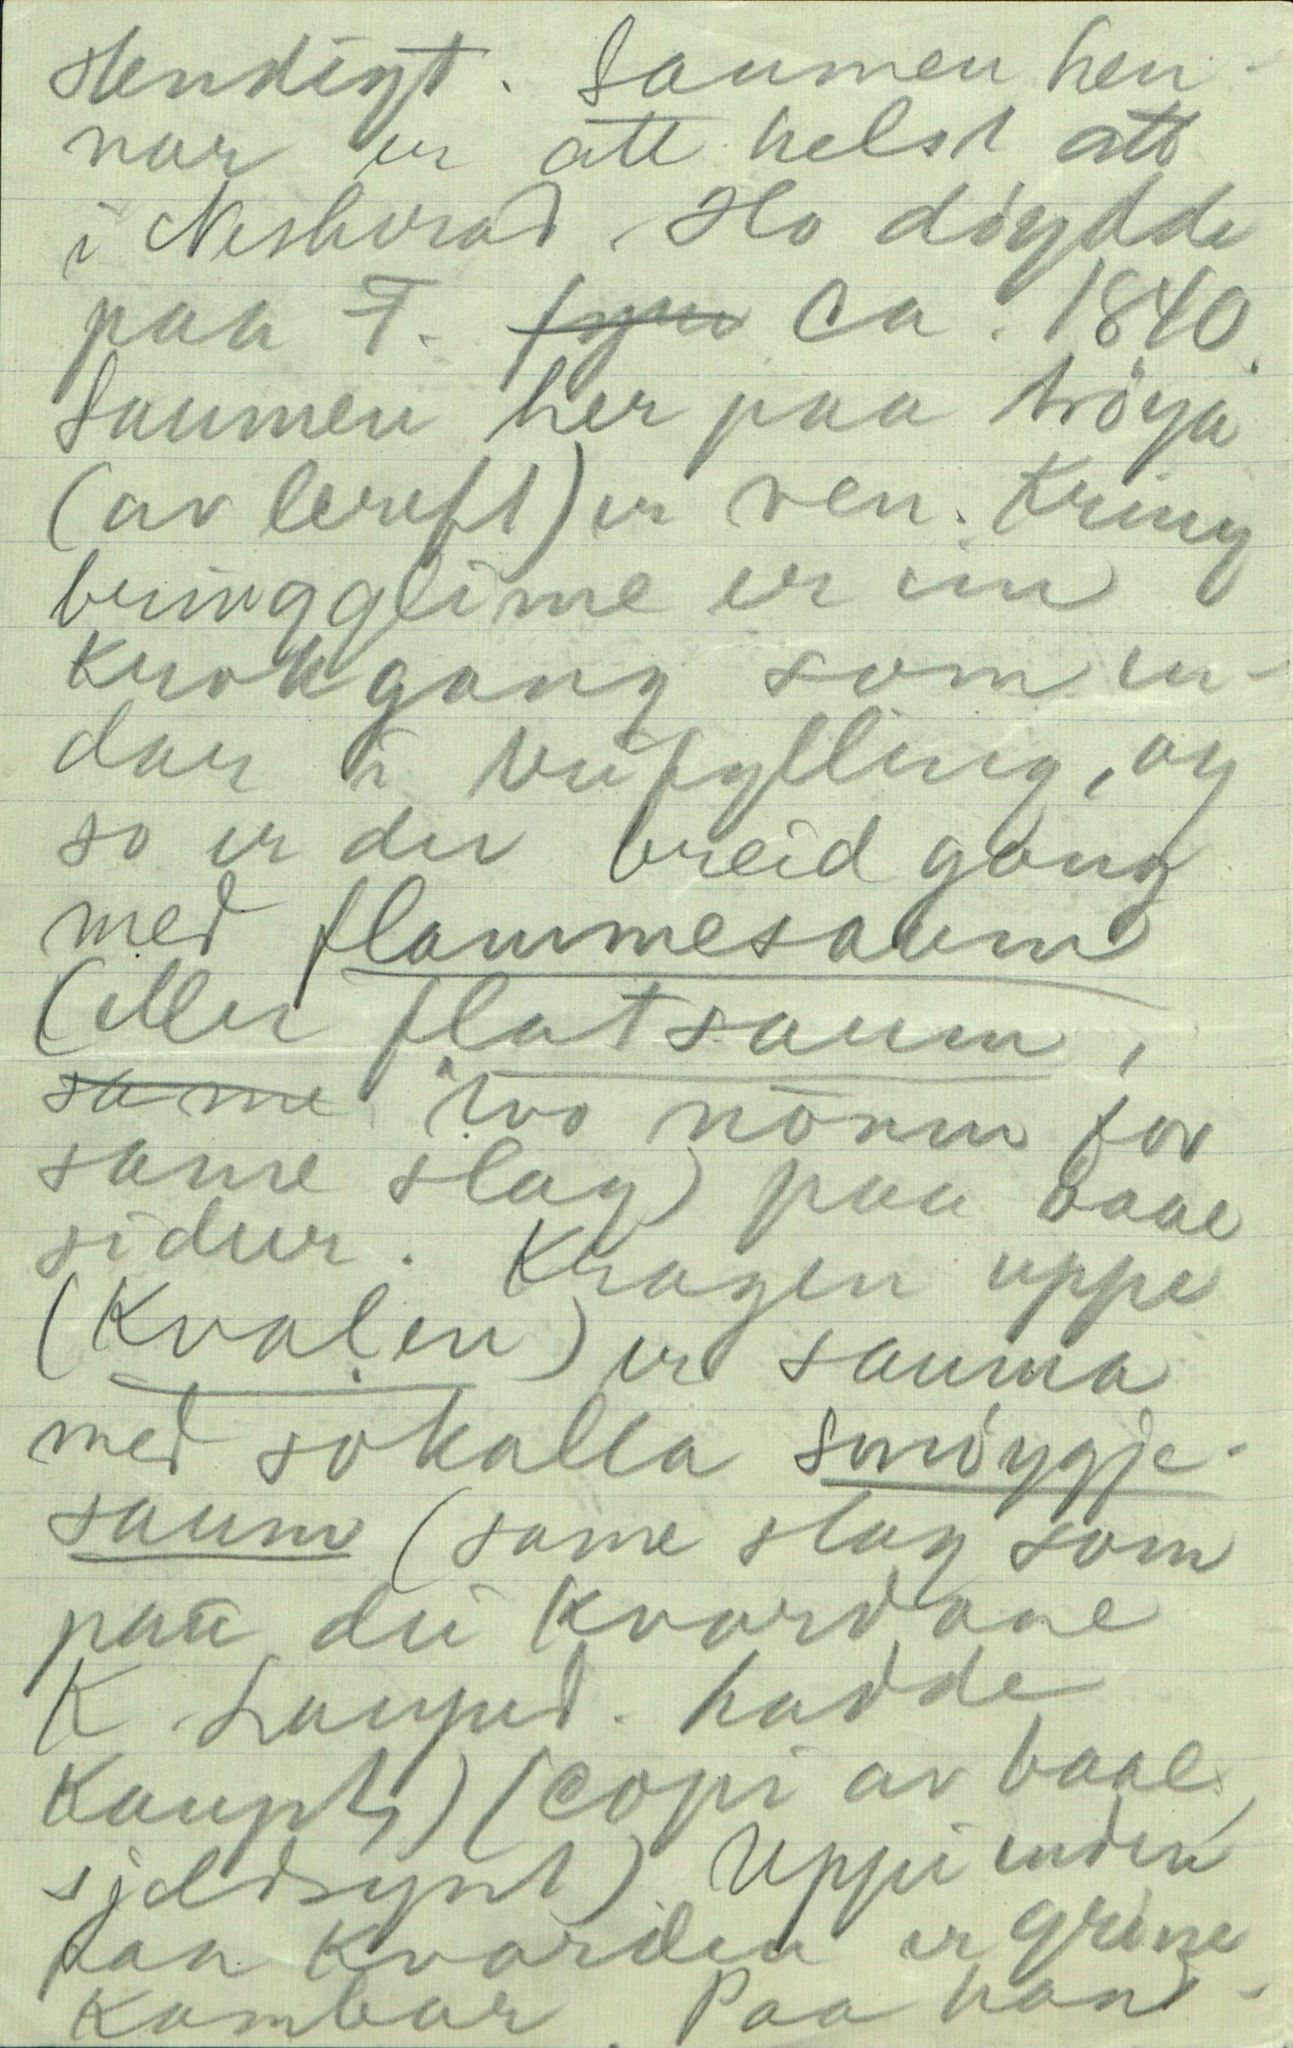 stendigt. Saumen hen-
nar er att helst att
i Nesherad. Ho döydde
paa F. ca. 1840.
Saumen her paa tröya
(av lereft) er ven. Kring
bringglime er ein
Krokgang som en-
dar i trifylling, og
so er det breid gang
med flammesaum
(eller flatsaum,
same two nömn for
same slag) paa baae
sidur. Kragen uppe
(Kvalen) er sauma
med sokalla smöygje-
saum (same slag som
paa dei Kvardaae
K. Lauped. hadde
Kaupt) (copi av baae,
sjeldsynt). Uppi enden
paa Kvarden er greine
Kambar. Paa han-